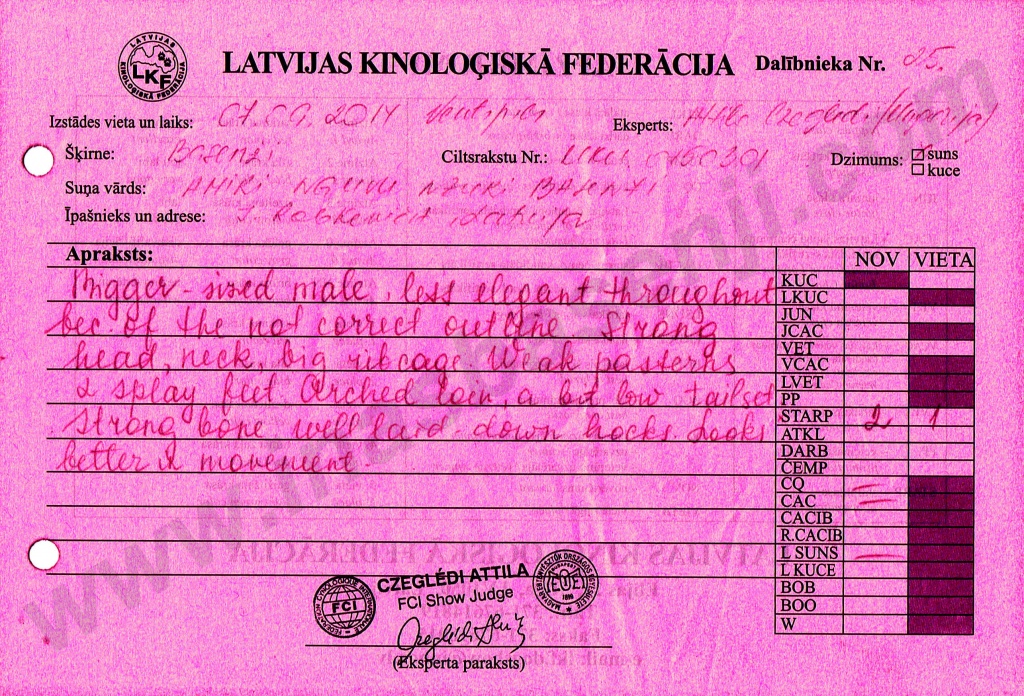 LATVIJAS KINOLOĢISKĀ FEDERĀCIJA
LKF
LATVIJAS KINOLOĢISKĀ FEDERĀCIJA Dalībnieka Nr. 25.
Izstādes vieta un laiks: 07.09.2014 Ventspils Eksperts: Attila Czegledi (Ungārija)
Šķirne: Basenji Ciltsrakstu Nr.: Dzimums: ☑ suns
☐ kuce
Suņa vārds: AMIRI NGUVU NZURI BASENJI
Īpašnieks un adrese: Latvija
Apraksts: NOV VIETA
Bigger-sized male, less elegant throughout
bec. of the not correct outline. Strong
head, neck, big ribcage. Weak pasterns
& splay feet. Arched loin, a bit low tailset
Strong bone well laid down hocks. Looks
better in movement.
KUC
LKUC
JUN
JCAC
VET
VCAC
LVET
PP
STARP 2 1
ATKL
DARB
ČEMP
CQ –
CAC –
CACIB
R.CACIB
L SUNS –
L KUCE
BOB
BOO
W
FCI
FEDERATION CYNOLOGIQUE INTERNATIONALE
CZEGLÉDI ATTILA
FCI Show Judge
Czeglédi
(Eksperta paraksts)